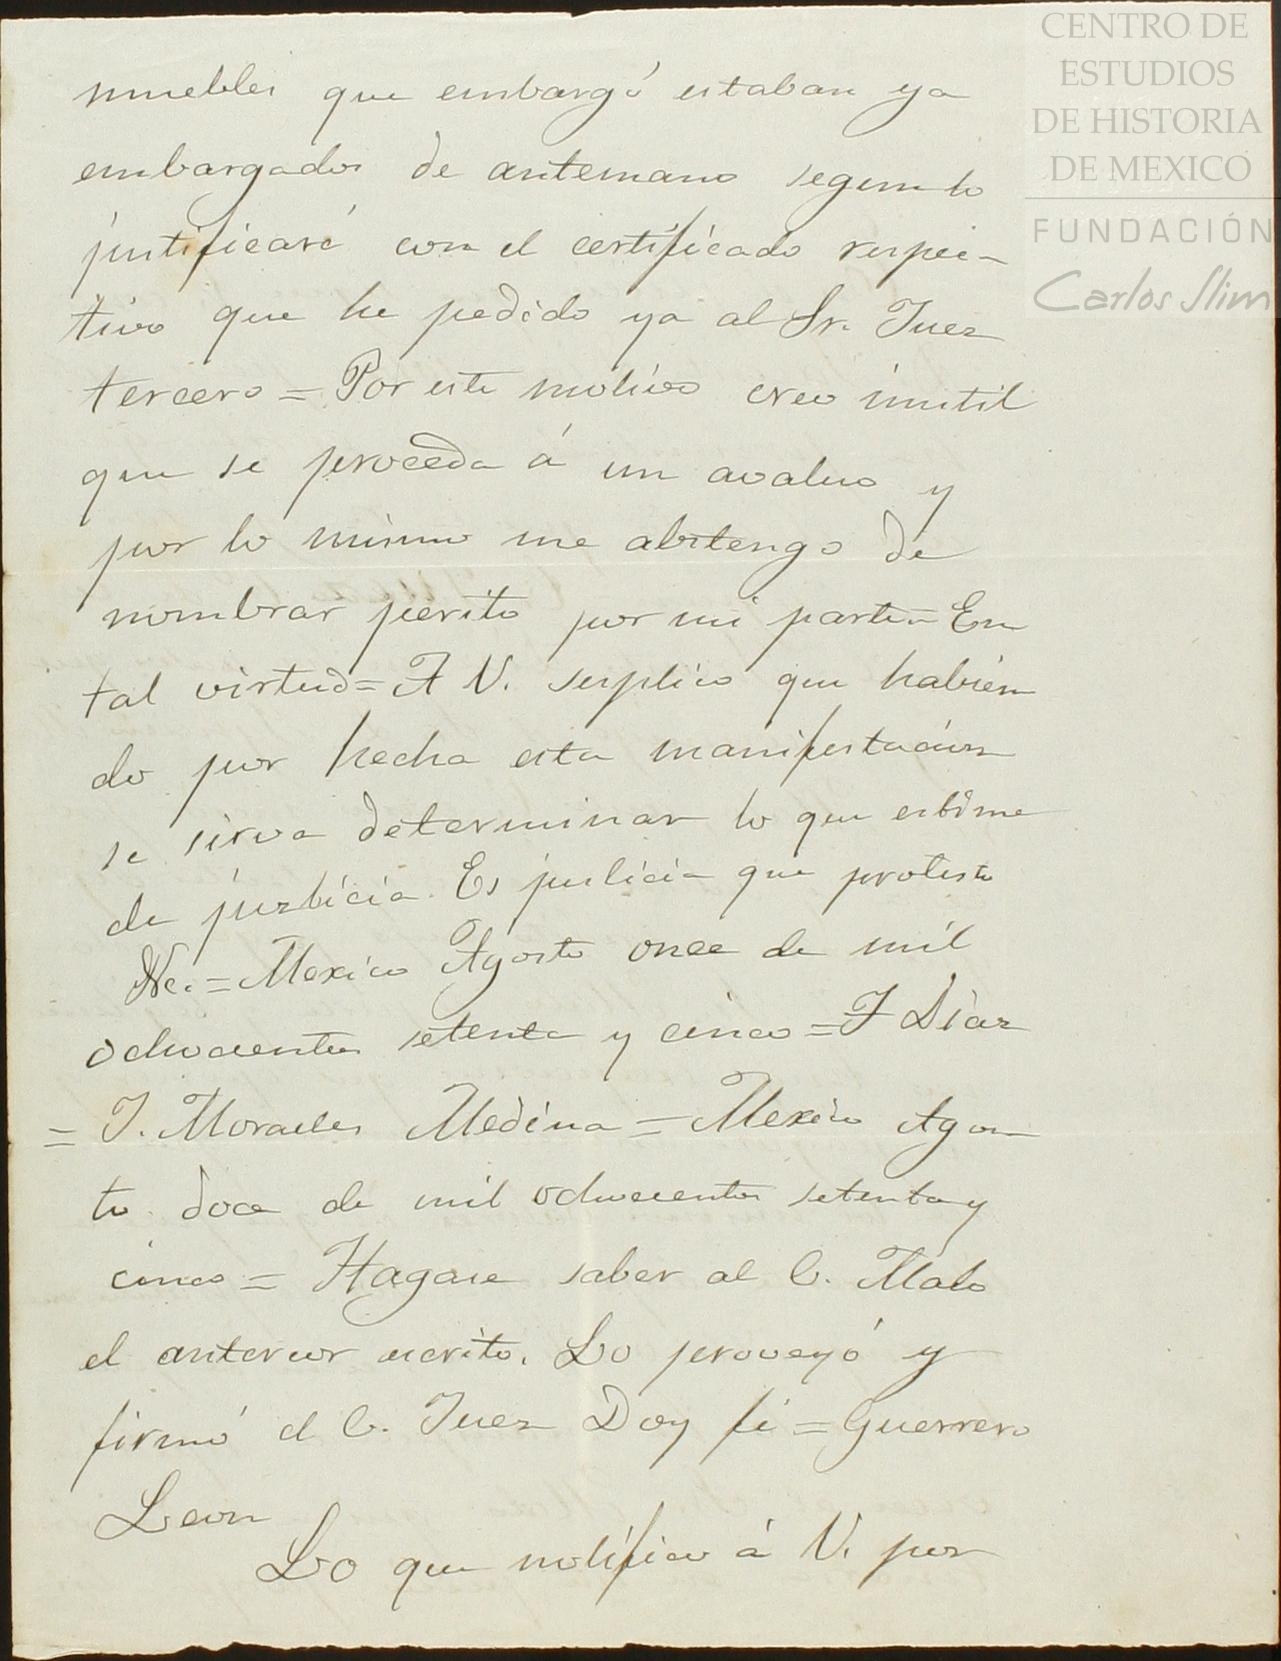 CENTRO DE
ESTUDIOS
DE HISTORIA
DE MEXICO
FUNDACIÓN
Carlos Slim
muebles que embargó estaban ya
embargados de antemano segun lo
justificaré con el certificado respec-
tivo que he pedido ya al Sr. Juez
tercero = Por este motivo creo inutil
que se proceda á un avaluo y
por lo mismo me abstengo de
nombrar perito por mi parte = En
tal virtud = A V. suplico que habien
do por hecha esta manifestacion
se sirva determinar lo que estime
de justicia. Es justicia que protesto
&c. = Mexico Agosto once de mil
ochocientos setenta y cinco = F Diaz
= J. Morales Medina = Mexico Agos
to doce de mil ochocientos setenta y
cinco = Hagase saber al C. Malo
el anterior escrito. Lo proveyó y
firmó el C. Juez Doy fé = Guerrero
Leon
Lo que notifico á V. por